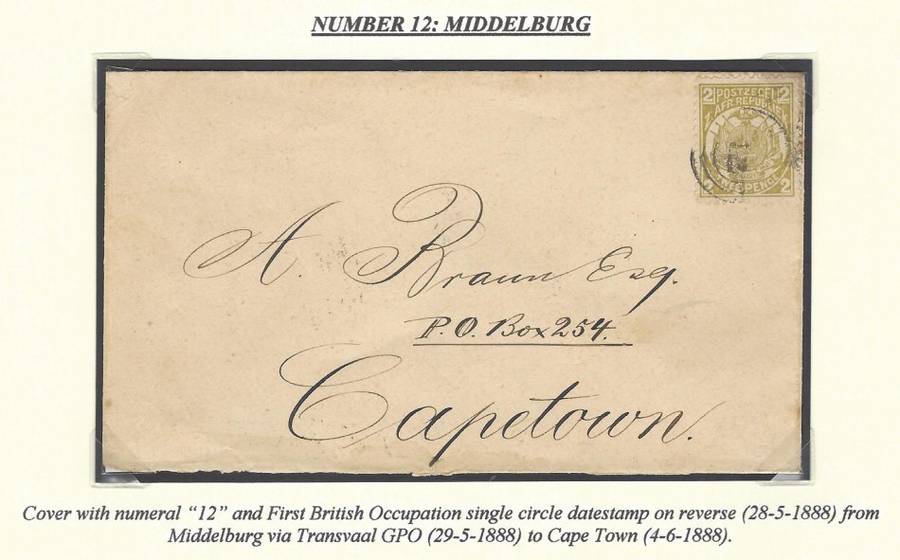 NUMBER 12: MIDDELBURG
2 POSTZEGEL 2
AFR. REPUBLIEK
2
A. Braun Esq.
P.O. Box 254.
Capetown.
Cover with numeral "12" and First British Occupation single circle datestamp on reverse (28-5-1888) from
Middelburg via Transvaal GPO (29-5-1888) to Cape Town (4-6-1888).